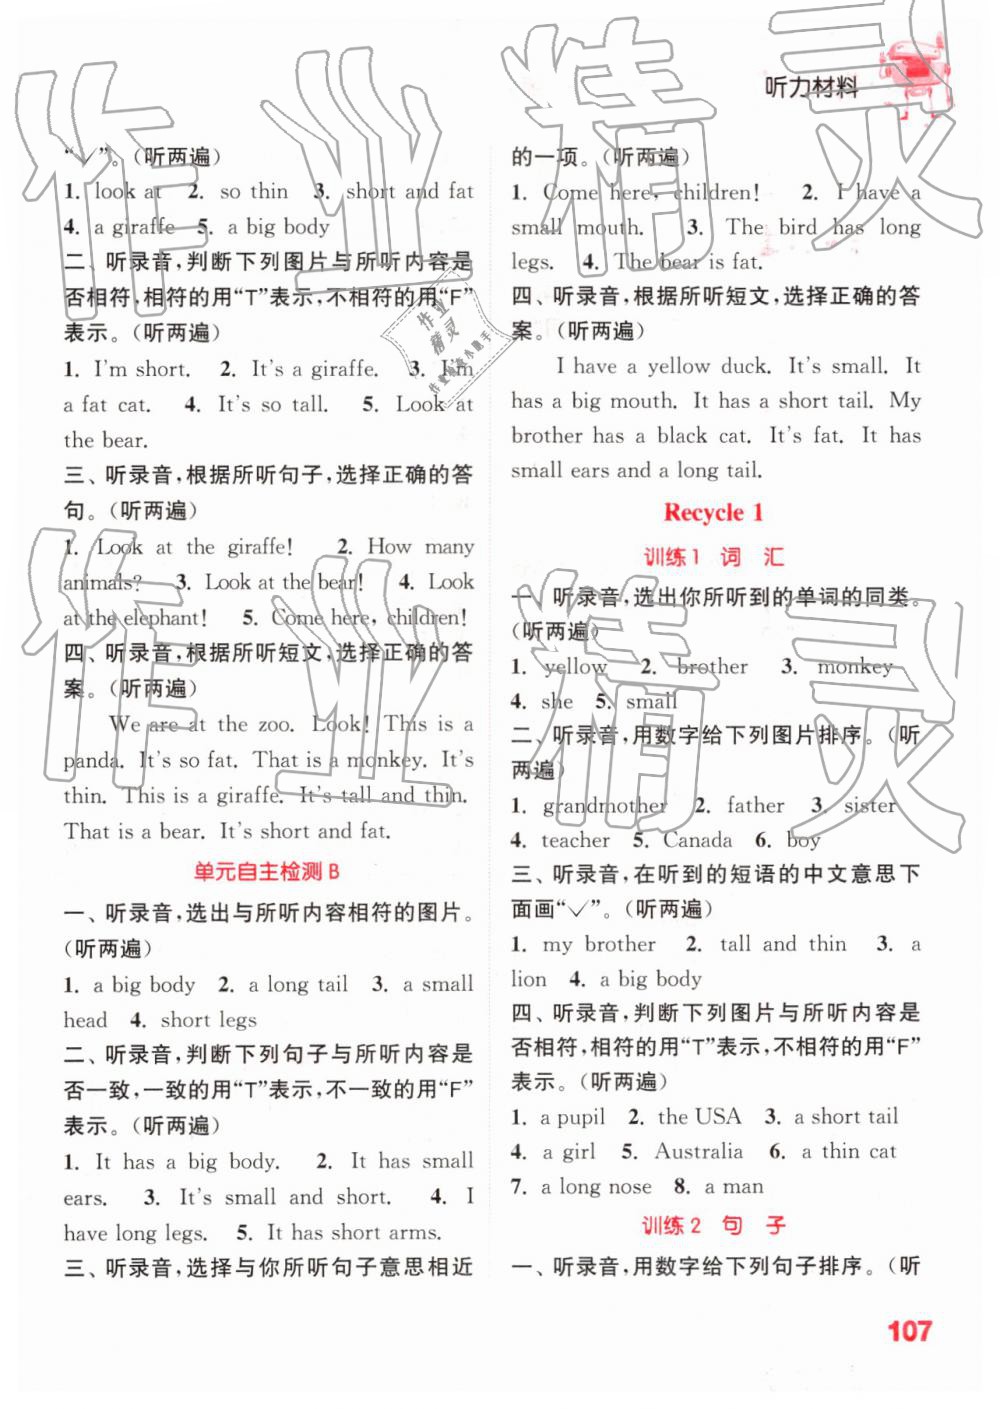 听力材料
“✓”。(听两遍)
1. look at 2. so thin 3. short and fat
4. a giraffe 5. a big body
二、听录音,判断下列图片与所听内容是
否相符,相符的用“T”表示,不相符的用“F”
表示。(听两遍)
1. I'm short. 2. It's a giraffe. 3. I'm
a fat cat. 4. It's so tall. 5. Look at
the bear.
三、听录音,根据所听句子,选择正确的答
句。(听两遍)
1. Look at the giraffe! 2. How many
animals? 3. Look at the bear! 4. Look
at the elephant! 5. Come here, children!
四、听录音,根据所听短文,选择正确的答
案。(听两遍)
We are at the zoo. Look! This is a
panda. It's so fat. That is a monkey. It's
thin. This is a giraffe. It's tall and thin.
That is a bear. It's short and fat.
单元自主检测 B
一、听录音,选出与所听内容相符的图片。
(听两遍)
1. a big body 2. a long tail 3. a small
head 4. short legs
二、听录音,判断下列句子与所听内容是
否一致,一致的用“T”表示,不一致的用“F”
表示。(听两遍)
1. It has a big body. 2. It has small
ears. 3. It's small and short. 4. I
have long legs. 5. It has short arms.
三、听录音,选择与你所听句子意思相近
的一项。(听两遍)
1. Come here, children! 2. I have a
small mouth. 3. The bird has long
legs. 4. The bear is fat.
四、听录音,根据所听短文,选择正确的答
案。(听两遍)
I have a yellow duck. It's small. It
has a big mouth. It has a short tail. My
brother has a black cat. It's fat. It has
small ears and a long tail.
Recycle 1
训练1 词 汇
一、听录音,选出你所听到的单词的同类。
(听两遍)
1. yellow 2. brother 3. monkey
4. she 5. small
二、听录音,用数字给下列图片排序。(听
两遍)
1. grandmother 2. father 3. sister
4. teacher 5. Canada 6. boy
三、听录音,在听到的短语的中文意思下
面画“✓”。(听两遍)
1. my brother 2. tall and thin 3. a
lion 4. a big body
四、听录音,判断下列图片与所听内容是
否相符,相符的用“T”表示,不相符的用“F”
表示。(听两遍)
1. a pupil 2. the USA 3. a short tail
4. a girl 5. Australia 6. a thin cat
7. a long nose 8. a man
训练2 句 子
一、听录音,用数字给下列句子排序。(听
107
作业精灵
作业精灵
作业
精灵